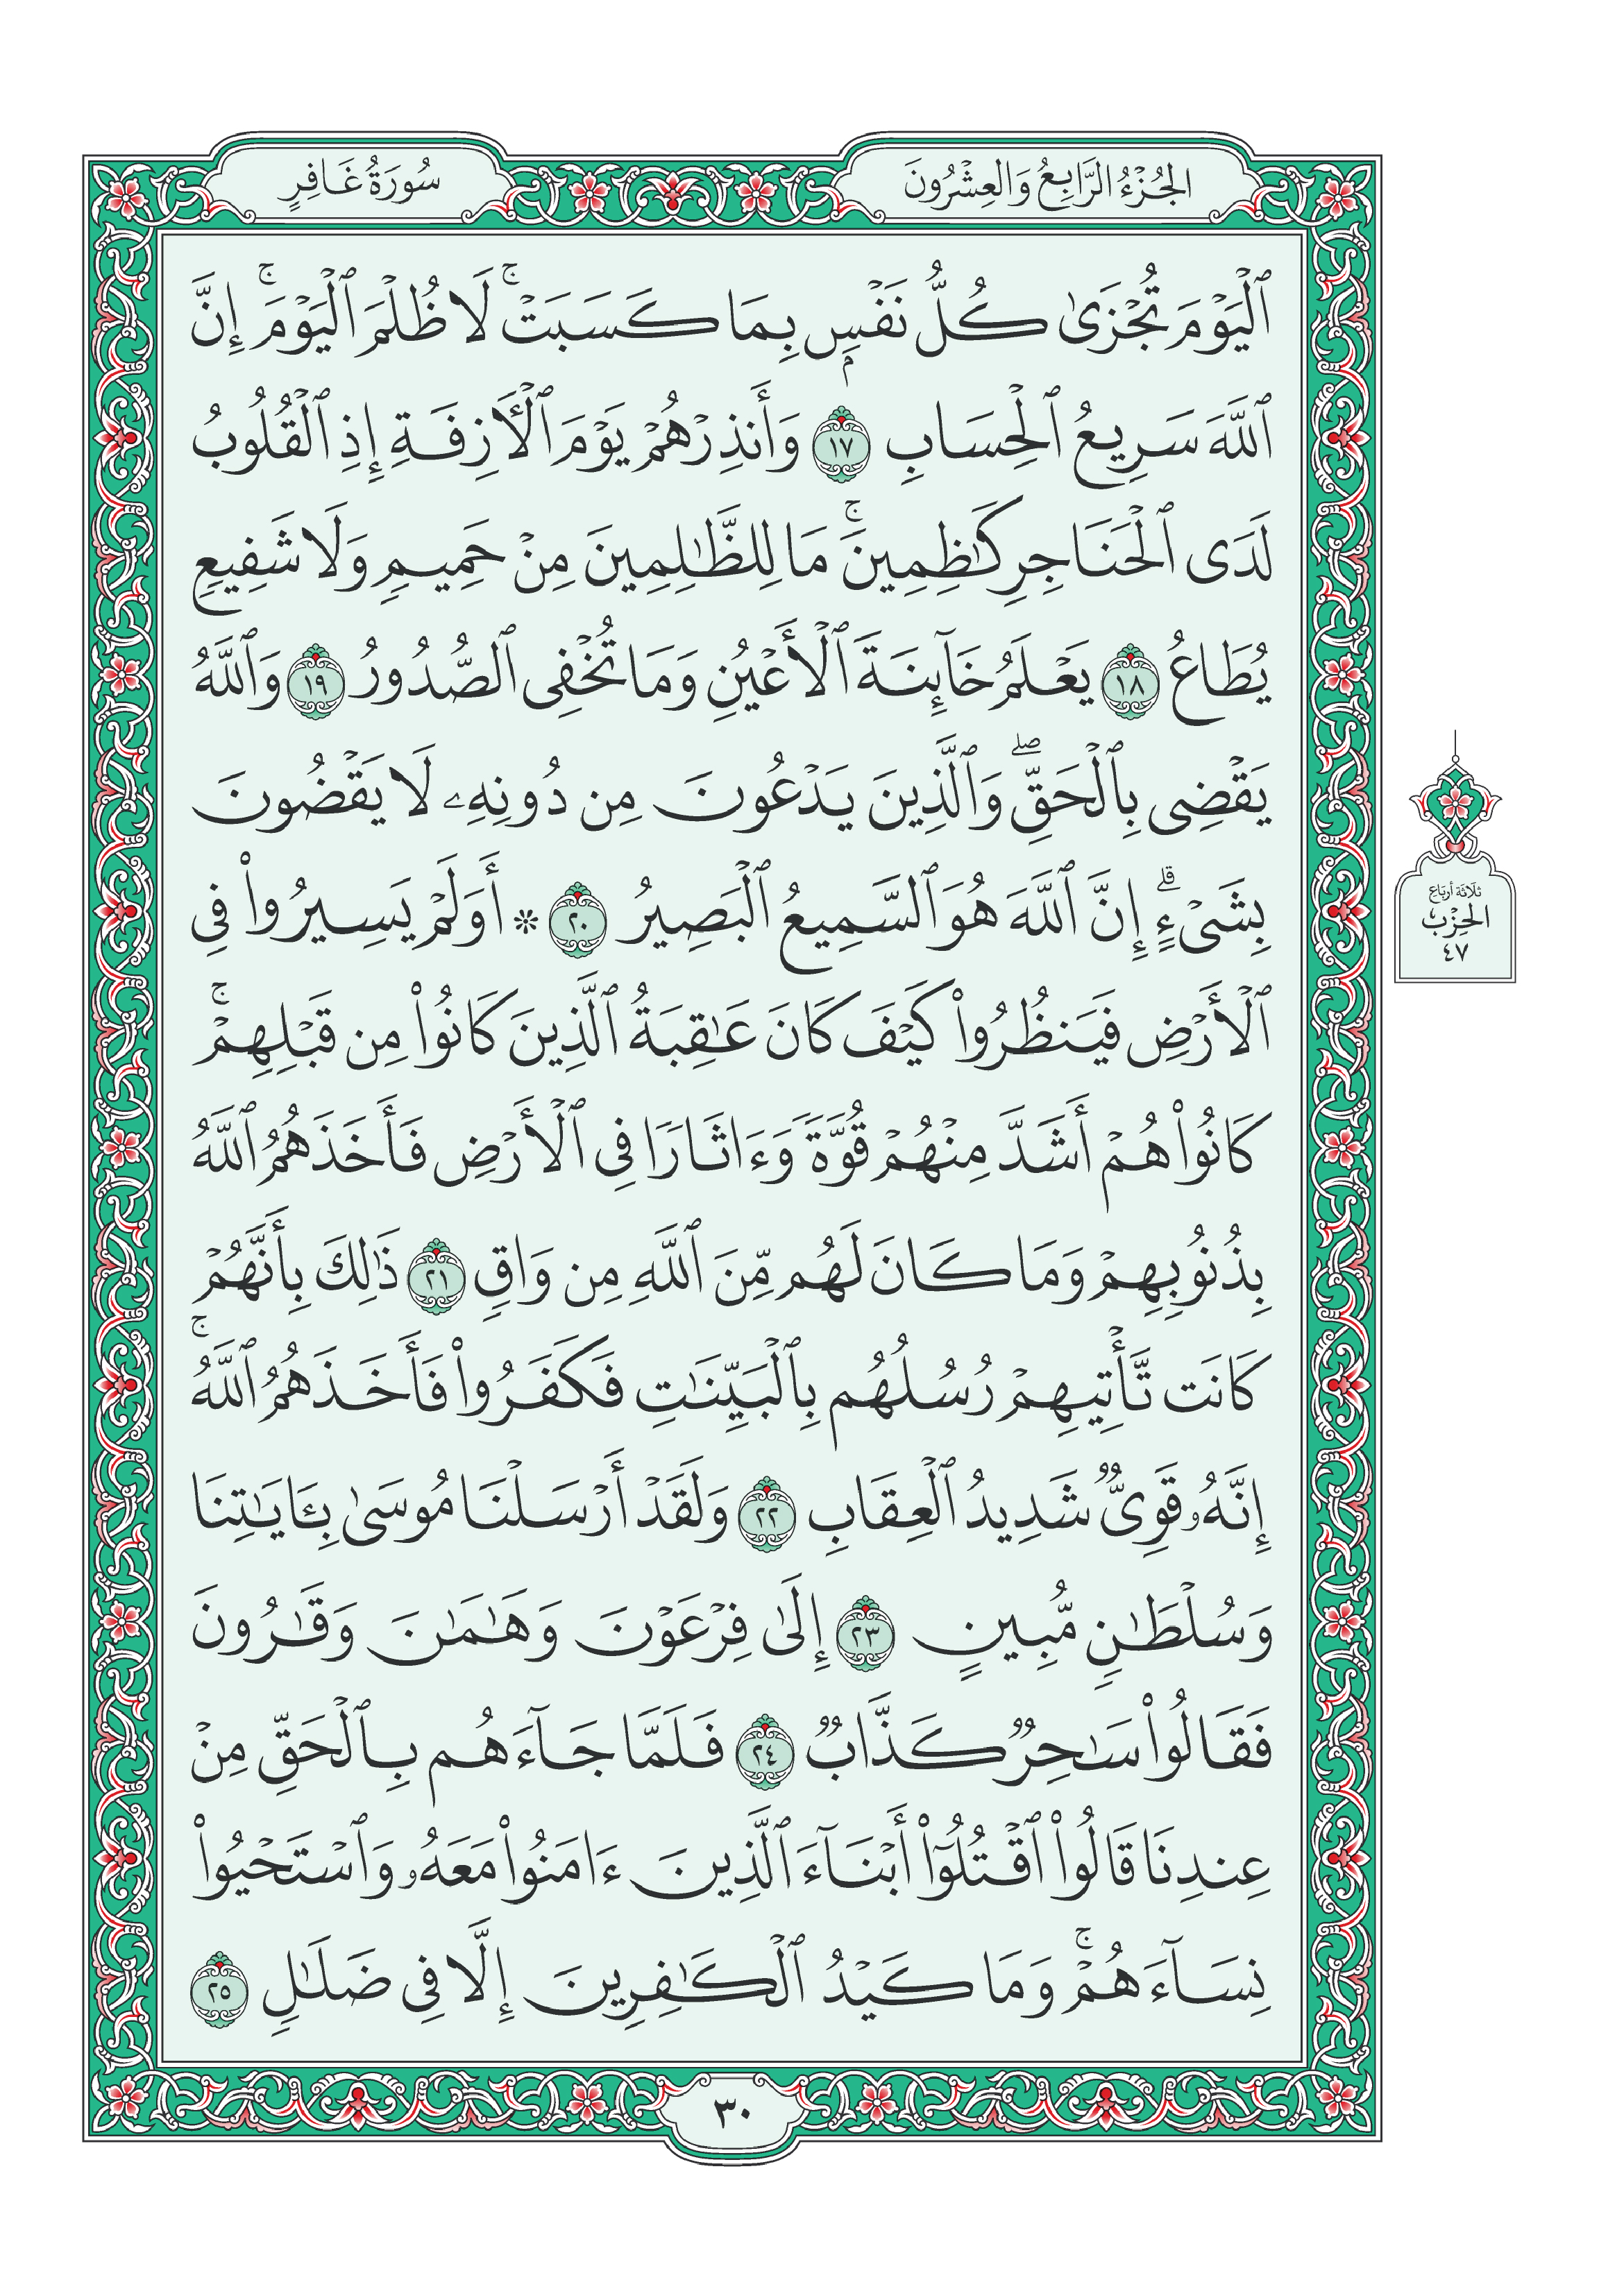 الجُزْءُ الرَّابِعُ وَالعِشْرُونَ
سُورَةُ غَافِرٍ
ٱلْيَوْمَ تُجْزَىٰ كُلُّ نَفْسٍۭ بِمَا كَسَبَتْۚ لَا ظُلْمَ ٱلْيَوْمَۚ إِنَّ
ٱللَّهَ سَرِيعُ ٱلْحِسَابِ ١٧ وَأَنذِرْهُمْ يَوْمَ ٱلْأٓزِفَةِ إِذِ ٱلْقُلُوبُ
لَدَى ٱلْحَنَاجِرِ كَٰظِمِينَۚ مَا لِلظَّٰلِمِينَ مِنْ حَمِيمٍ وَلَا شَفِيعٍ
يُطَاعُ ١٨ يَعْلَمُ خَآئِنَةَ ٱلْأَعْيُنِ وَمَا تُخْفِى ٱلصُّدُورُ ١٩ وَٱللَّهُ
يَقْضِى بِٱلْحَقِّۖ وَٱلَّذِينَ يَدْعُونَ مِن دُونِهِۦ لَا يَقْضُونَ
بِشَىْءٍۗ إِنَّ ٱللَّهَ هُوَ ٱلسَّمِيعُ ٱلْبَصِيرُ ٢٠ * أَوَلَمْ يَسِيرُوا۟ فِى
ٱلْأَرْضِ فَيَنظُرُوا۟ كَيْفَ كَانَ عَٰقِبَةُ ٱلَّذِينَ كَانُوا۟ مِن قَبْلِهِمْۚ
كَانُوا۟ هُمْ أَشَدَّ مِنْهُمْ قُوَّةً وَءَاثَارًا فِى ٱلْأَرْضِ فَأَخَذَهُمُ ٱللَّهُ
بِذُنُوبِهِمْ وَمَا كَانَ لَهُم مِّنَ ٱللَّهِ مِن وَاقٍ ٢١ ذَٰلِكَ بِأَنَّهُمْ
كَانَت تَّأْتِيهِمْ رُسُلُهُم بِٱلْبَيِّنَٰتِ فَكَفَرُوا۟ فَأَخَذَهُمُ ٱللَّهُۚ
إِنَّهُۥ قَوِىٌّ شَدِيدُ ٱلْعِقَابِ ٢٢ وَلَقَدْ أَرْسَلْنَا مُوسَىٰ بِـَٔايَٰتِنَا
وَسُلْطَٰنٍ مُّبِينٍ ٢٣ إِلَىٰ فِرْعَوْنَ وَهَٰمَٰنَ وَقَٰرُونَ
فَقَالُوا۟ سَٰحِرٌ كَذَّابٌ ٢٤ فَلَمَّا جَآءَهُم بِٱلْحَقِّ مِنْ
عِندِنَا قَالُوا۟ ٱقْتُلُوٓا۟ أَبْنَآءَ ٱلَّذِينَ ءَامَنُوا۟ مَعَهُۥ وَٱسْتَحْيُوا۟
نِسَآءَهُمْۚ وَمَا كَيْدُ ٱلْكَٰفِرِينَ إِلَّا فِى ضَلَٰلٍ ٢٥
ثلاثة أرباع
الحِزْب
٤٧
٣٠